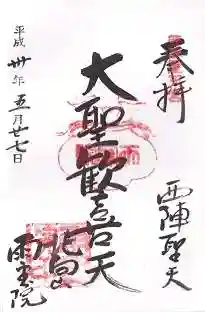 奉拝
西陣聖天
大聖歓喜天
雨宝院
平成卅年五月廿七日